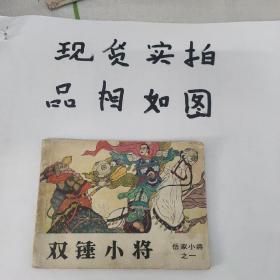 现货实拍
品相如图
双锤小将
岳家小将
之一